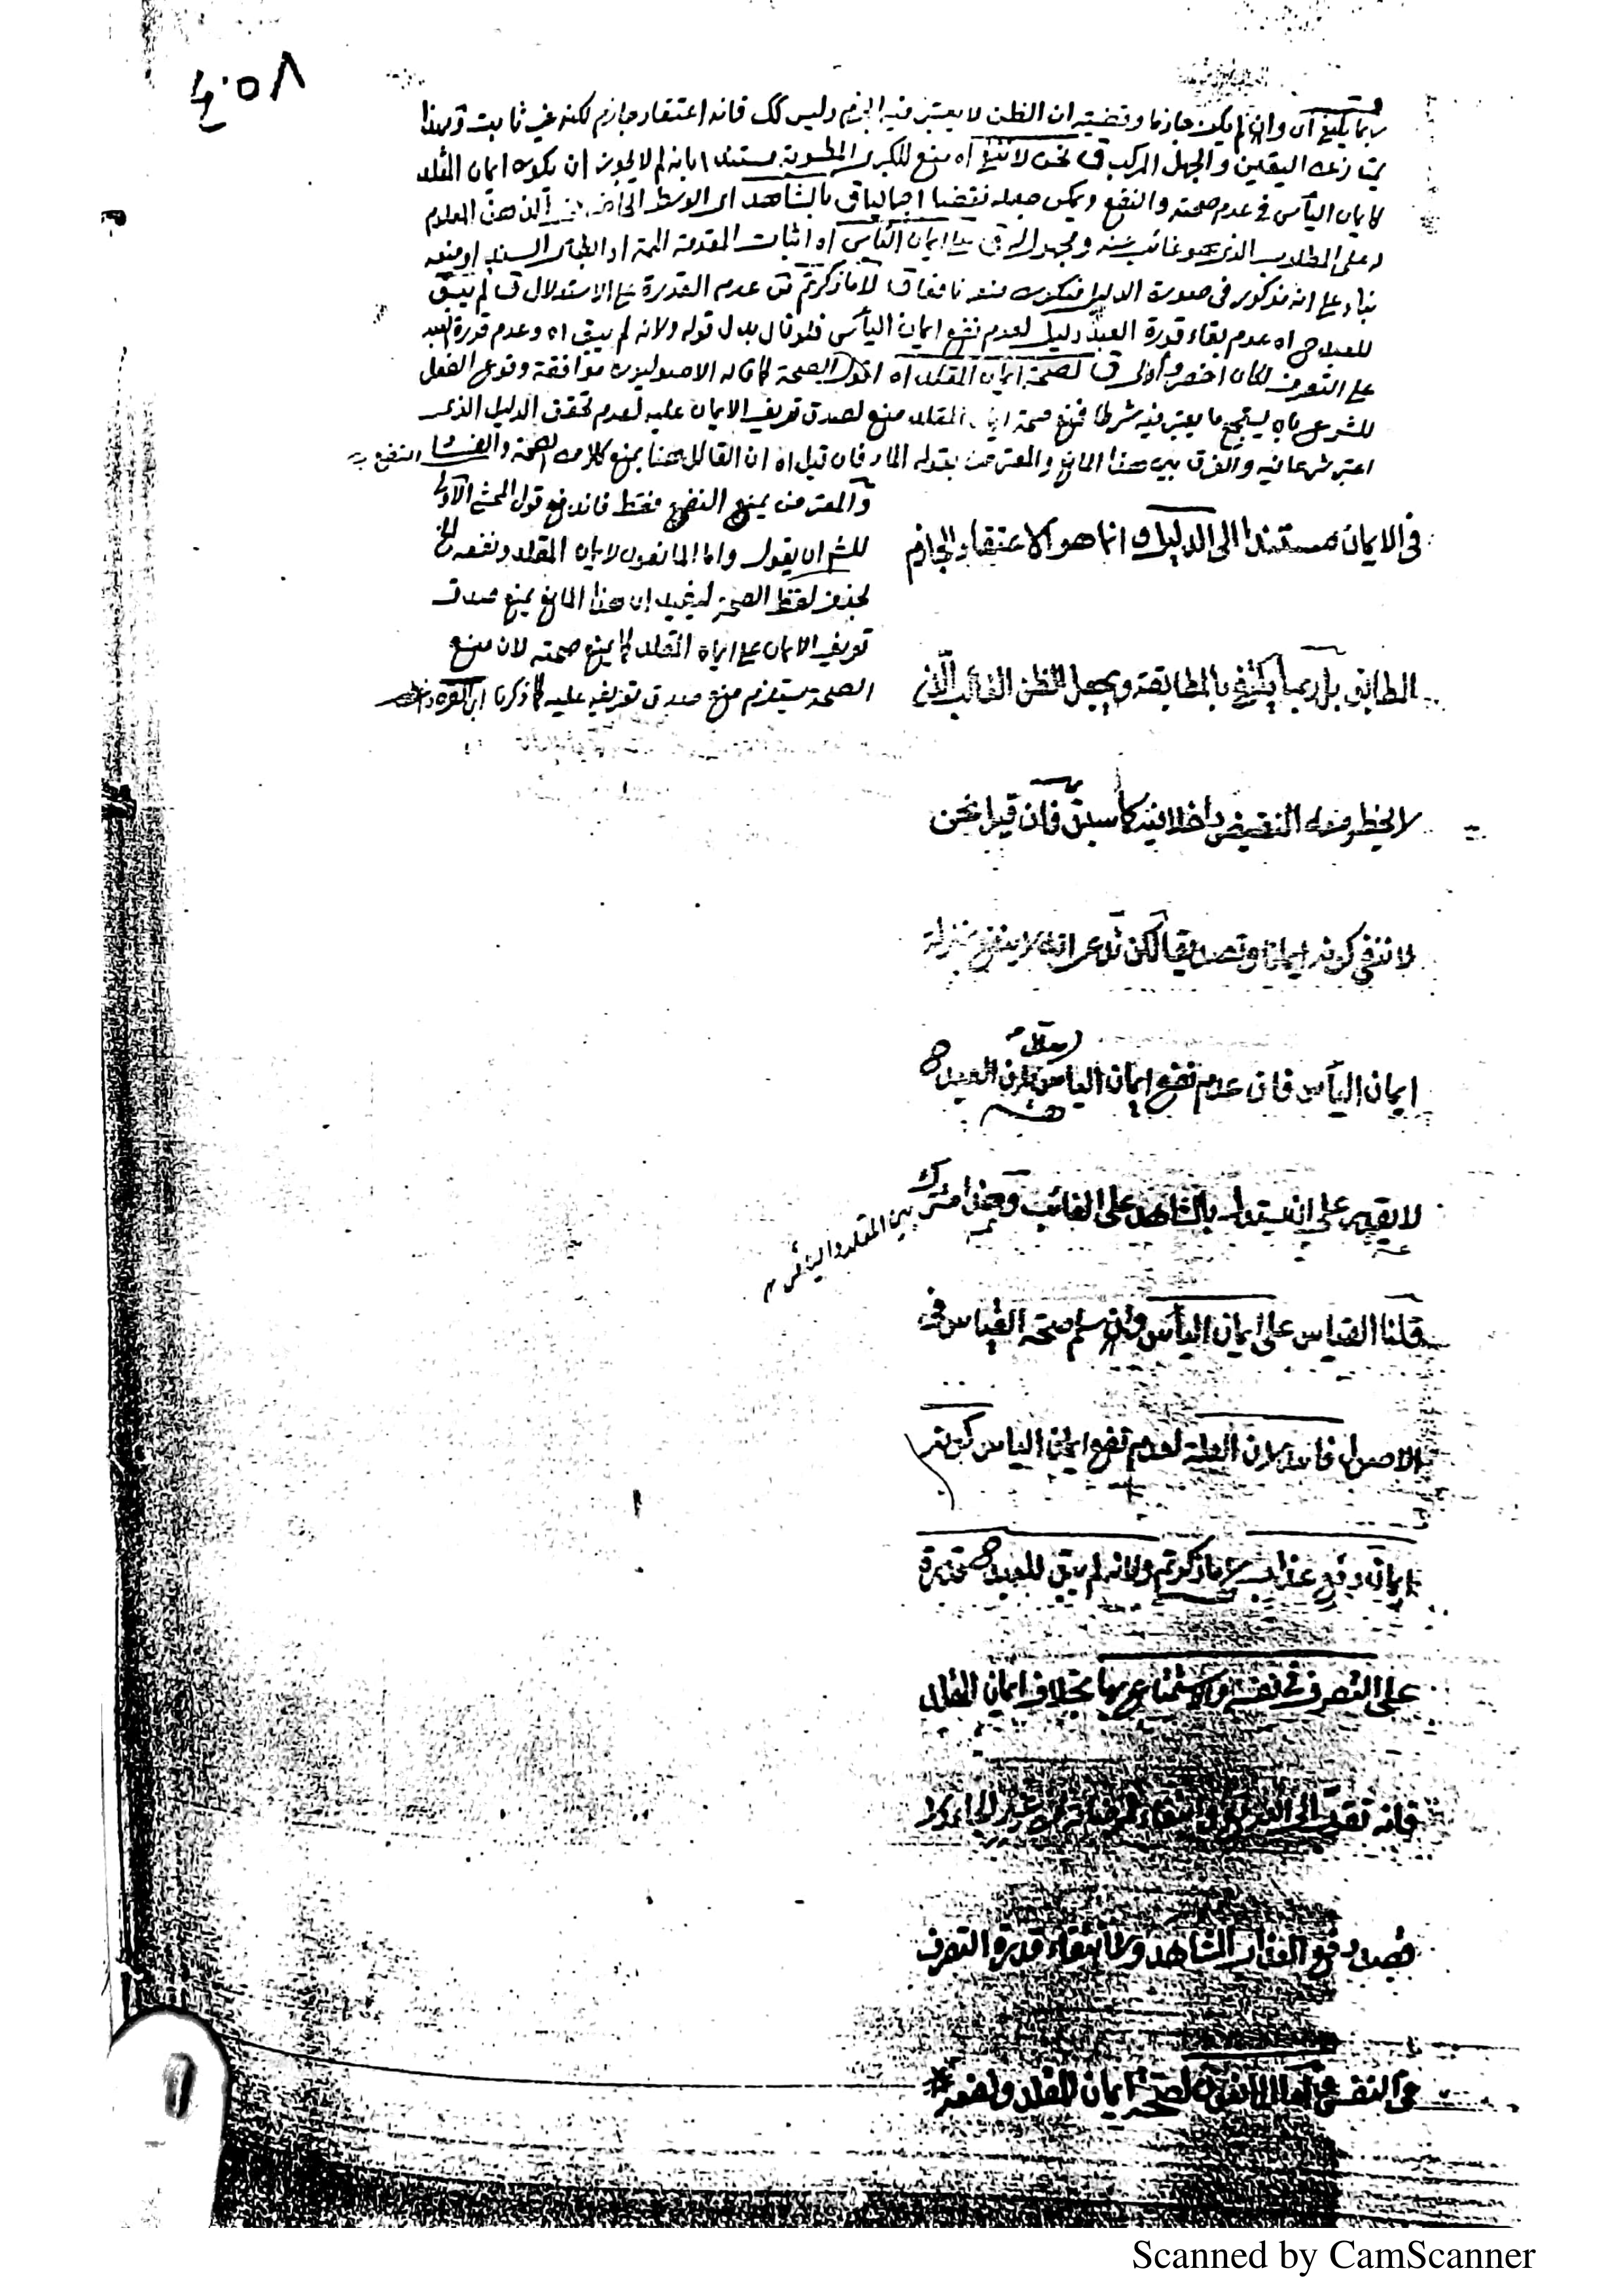 ٤٠٥٨
ربما يكفى اه وان لم يكن جازما وقضيته ان الظن لا يعتبر فيه الجزم وليس كك فانه اعتقاد جازم لكنه غير ثابت وبهذا
يمتاز عنه اليقين والجهل المركب ق نحن لا ننفى اه منع للكبرى المطوية مستندا بانه لم لا يجوز ان يكون ايمان المقلد
كايمان اليأس فى عدم صحته والنفع ويمكن جعله نقضا اجماليا ق بالشاهد اى الوسط الذهن المعلوم
على المطلوب الذى هو غائب عنه ومجهول له ق على ايمان اليأس اه اثبات المقدمة الممة او ابطال السند او منعه
بناء على انه مذكور فى صورة الدليل فيكون منعه نافعا ق لا ما ذكرتم من عدم القدرة على الاستدلال ق لم يبق
للعبد ح اه عدم بقاء قدرة العبد دليل لعدم نفع ايمان اليأس فلو قال بدل قوله ولانه لم يبق اه وعدم قدرة العبد
على التصرف لكان اخصر واولى ق لصحة ايمان المقلد اه الصحة كما قاله الاصوليون موافقة وقوع الفعل
للشرع بان يستجمع ما يعتبر فيه شرطا فمنع صحة ايمان المقلد منع لصدق تعريف الايمان عليه لعدم تحقق الدليل الذى
اعتبر شرعا فيه والفرق بين هذا المانع والمعترض بقوله المار فان قيل اه ان القائل هنا يمنع كلا من الصحة و النفع
والمعترض يمنع النفع فقط فاندفع قول المحشى الاولى
للش ان يقول واما المانعون لايمان المقلد ونفعه الخ
بحذف لفظ الصحة ليفيد ان هذا المانع يمنع صدق
تعريف الايمان على ايمان المقلد كما يمنع صحته لان منع
الصحة يستلزم منع صدق تعريفه عليه كما ذكرنا
فى الايمان مستندا الى الدليل وانما هو الاعتقاد الجازم
المطابق بل ربما يكتفى بالمطابقة ويجعل الظن الغالب الذى
لا يخطر معه النقيض داخلا فيه كما سبق فان قيل نحن
لا ننفى كونه ايمانا وتصديقا لكن ندعى انه لا ينفع بمنزلة
ايمان اليأس فان عدم نفع ايمان اليأس لان العبد ح
لا يقدر على ان يستدل بالشاهد على الغائب وهذا مشترك
بين المقلد واليأس م
قلنا القياس على ايمان اليأس وان سلم صحة القياس فى
الاصول فاسد لان العلة لعدم نفع ايمان اليأس كونه
ايمان دفع عذاب لا ما ذكرتم ولانه لم يبق للعبد ح قدرة
على التصرف فى نفسه والاستمتاع بها بخلاف ايمان المقلد
فانه تقرب الى الله
قصد دفع العذاب المشاهد ولا انتفاء قدرة التصرف
فى النفس واما المانعون لصحة ايمان المقلد ونفعه
Scanned by CamScanner